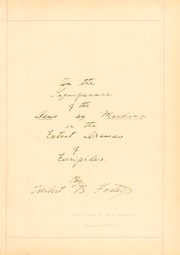 On the
Significance
of the
Deus ex Machina
in the
Extant Dramas
of
Euripides.
By
Herbert B. Foster